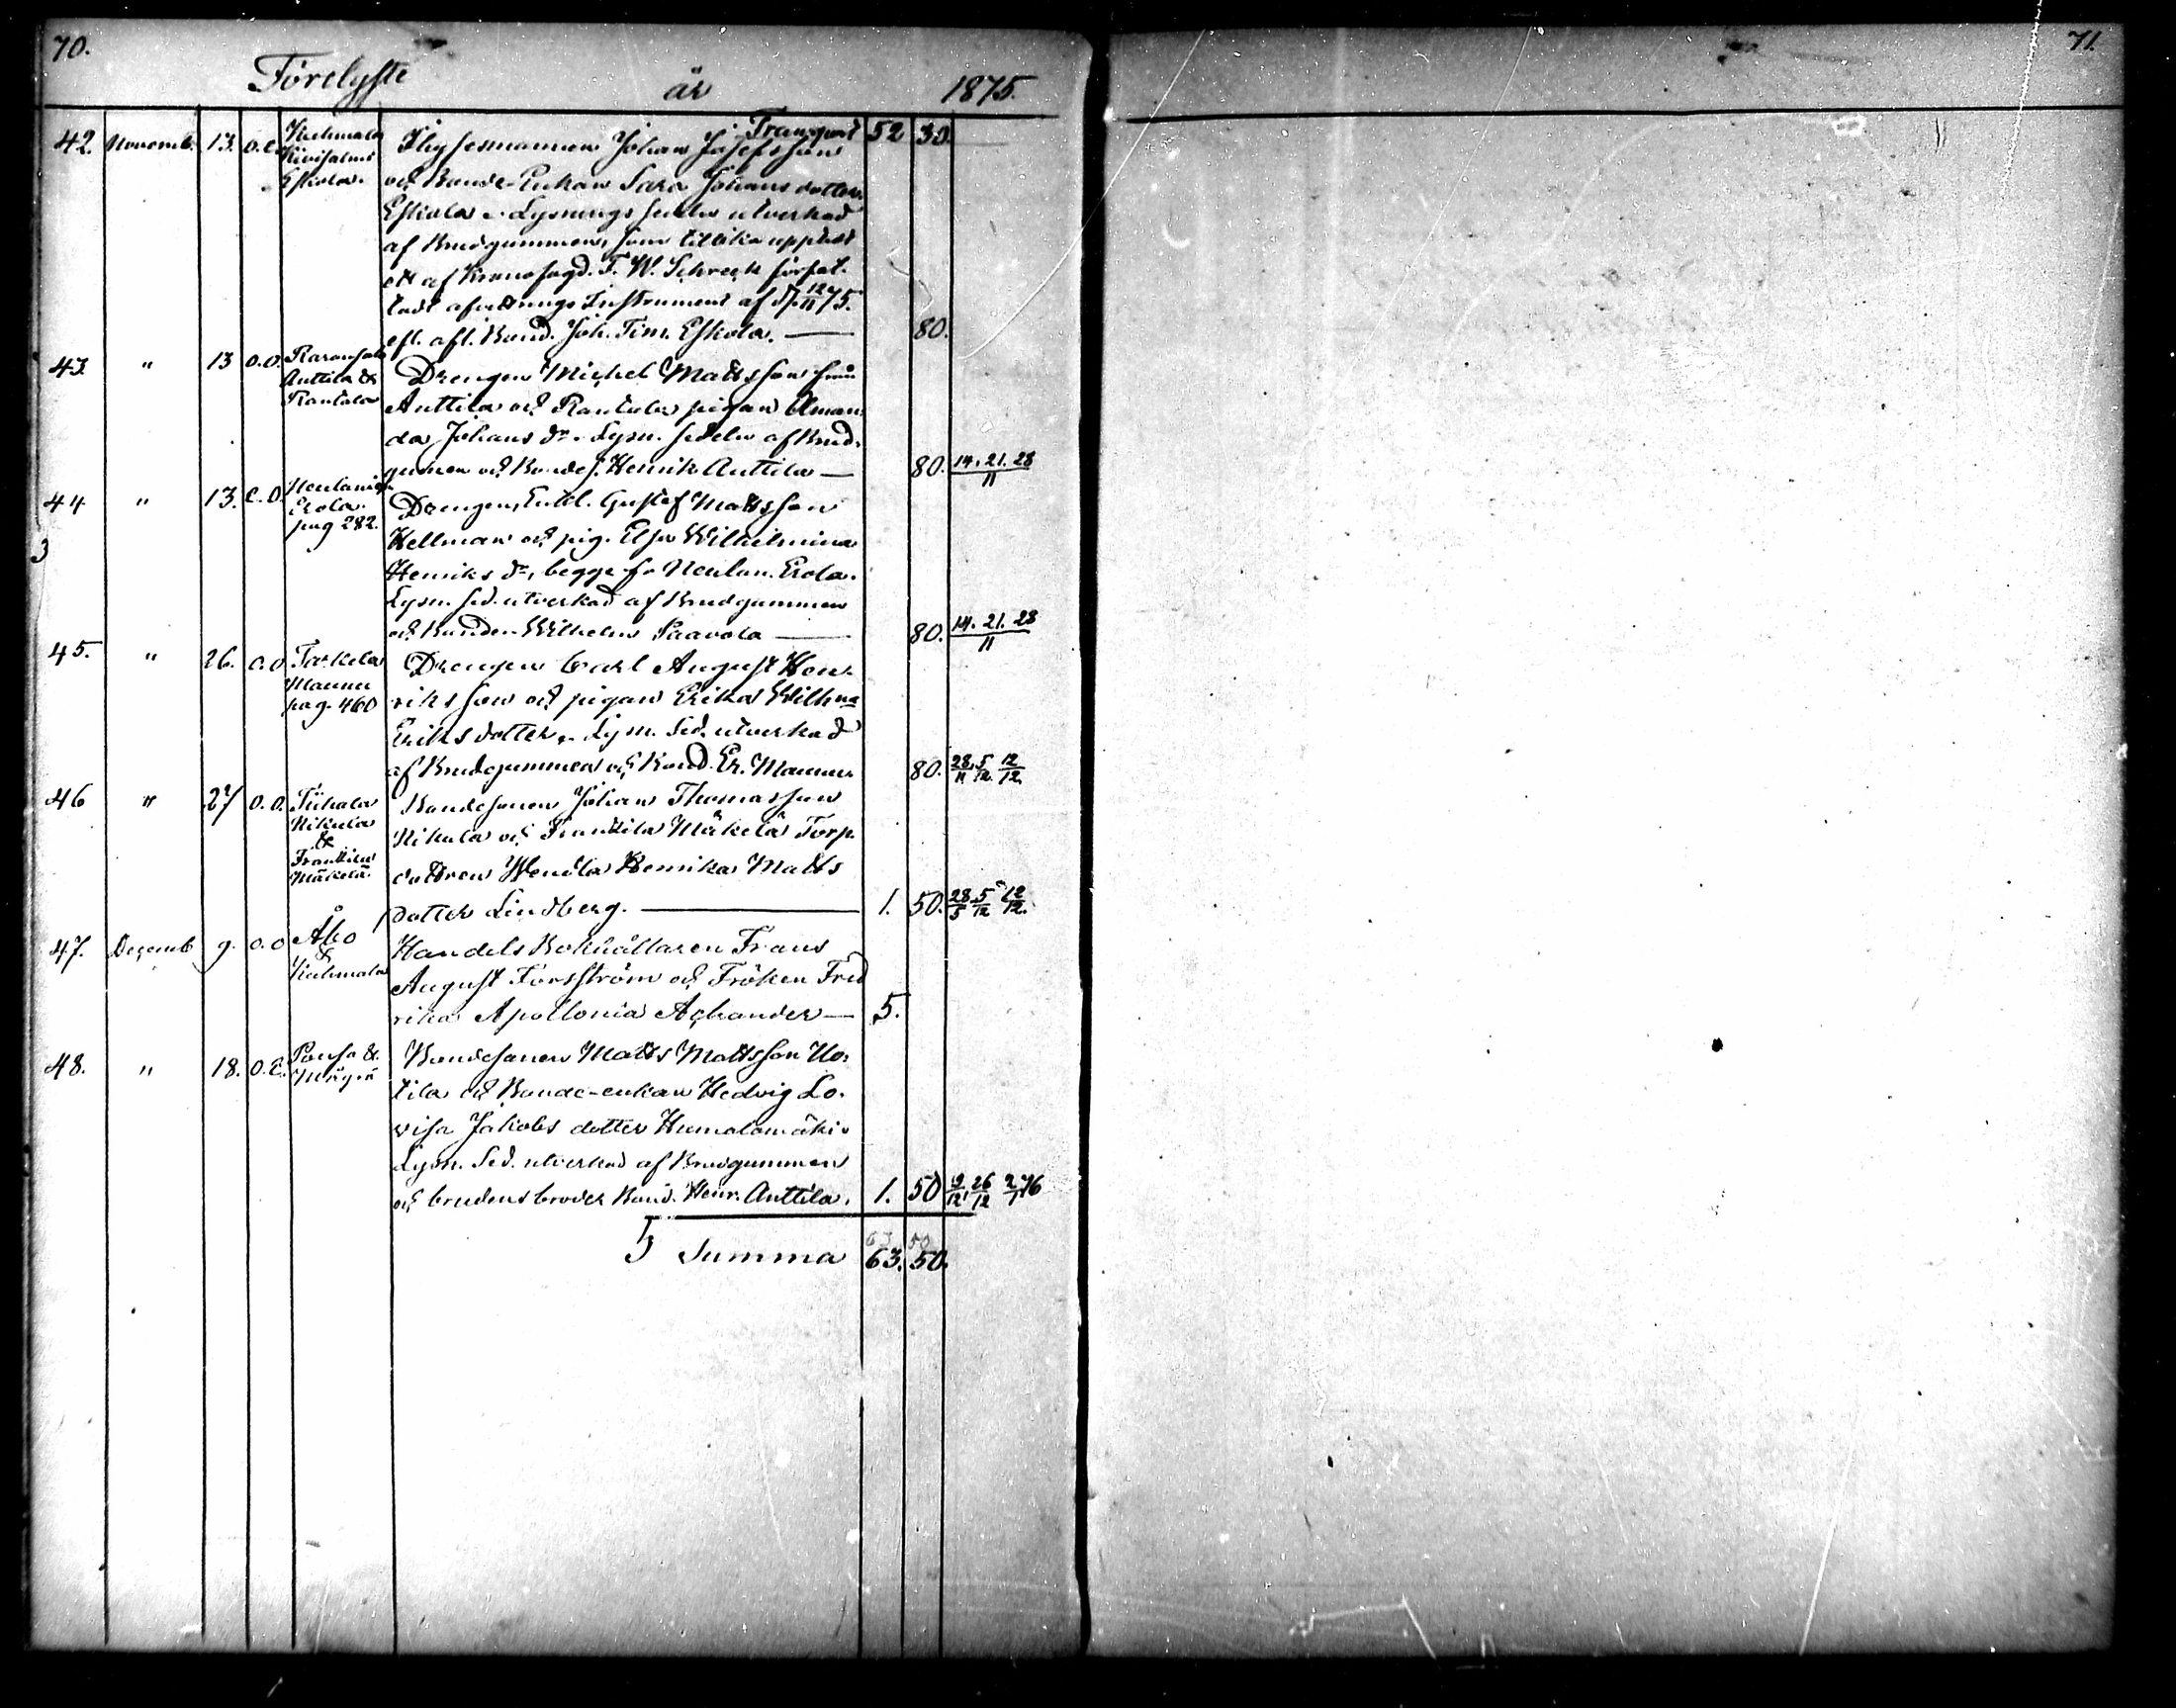 70.
71.
Förelyste år 1875.
Transport 52 30.
42. Novemb. 13. O.E. Johan Josefsson
och Bonde-Enkan Sara Johans dotter
Eskola. Lysnings sedeln utverkad
af Brudgummen, som tillika uppvist
ett af Kronofogd. F. W. Schreck förfat-
tadt afvittrings Instrument af d. 12/11 75.
eft. afl. Bond. Joh. Tim. Eskola. — 80.
Eskola.
43. " 13 O.O. Anttila & Rantala
Drengen Michel Mattsson från
Anttila och Rantala pigan Aman-
da Johans dr. Lysn. sedeln af Brud-
gummen och Bondes. Henrik Anttila — 80. 14. 21. 28/11
44 " 13. E.O. Erola pag 282.
Drengen, Gustaf Mattsson
Hellman och pig. Elsa Wilhelmina
Henriks dr, begge fr Neulan. Erola.
Lysn. sed. utverkad af Brudgummen
och Bonden Wilhelm Paavola — 80. 14. 21. 28/11
3
45. " 26. O.O. Tarkela Maunu pag. 460
Drengen Carl August Hen-
riksson och pigan Erika Wilhna
Eriksdotter. Lysn. Sed. utverkad
af Brudgummen och Bond. Er. Maunu 80. 28/11 5/12 12/12
46 " 27 O.O. Tiihala Nikula & Franttila Mäkelä
Bondesonen Johan Thomasson
Nikula och Franttila Mäkelä Torp
dottren Wendla Henrika Matts
dotter Lindberg. — 1. 50. 28/5 5/12 12/12.
47. Decemb 9. O.O Åbo & Kuhmala
Handels Bokhållaren Frans
August Forsström och Fröken Fred
rika Apollonia Achander — 5.
48. " 18. O.E. Ponsa &
Bondesonen Matts Mattsson Uo-
tila och Bonde-enkan Hedvig Lo-
visa Jakobs dotter Humalamäki.
Lysn. Sed. utverkad af Brudgummen
och brudens broder Bond. Henr. Anttila. 1. 50 19/12 26/12 2/1 76
63 50
Summa 63. 50.